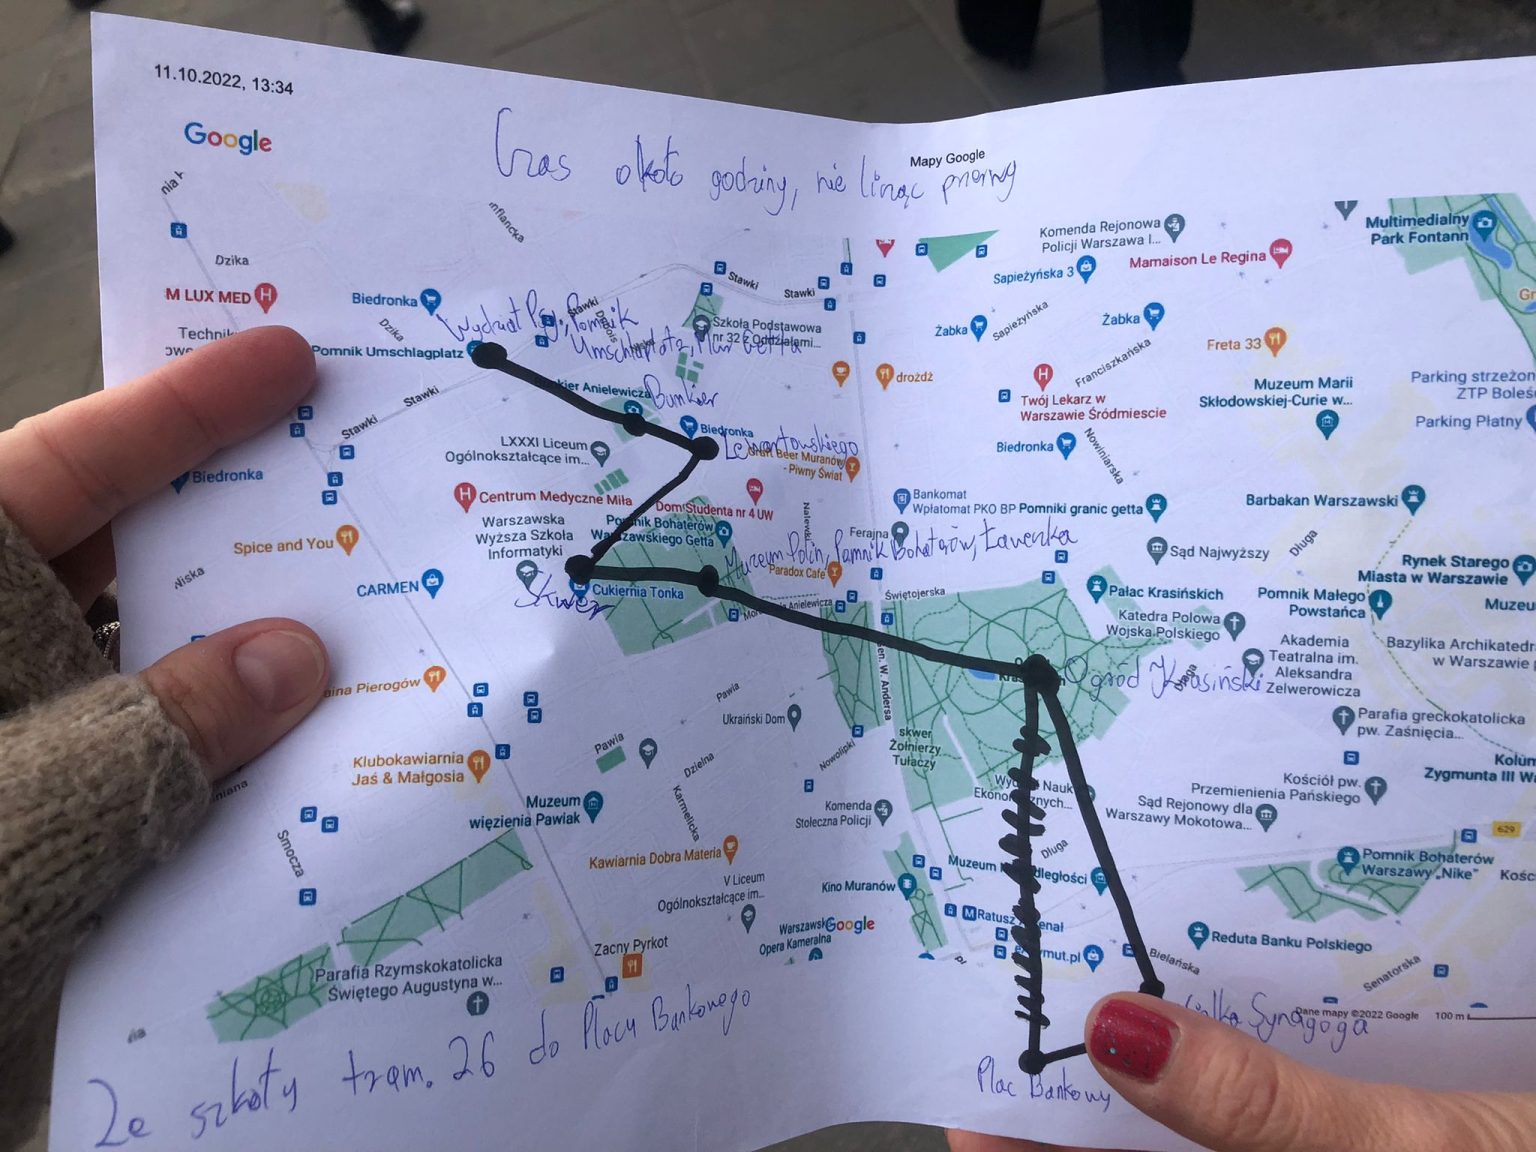 11.10.2022, 13:34
Google
Mapy Google
Czas około godziny, nie licząc przerwy
Inflancka
Dzika
Stawki
Stawki
Komenda Rejonowa
Policji Warszawa I...
Multimedialny
Park Fontann
Mamaison Le Regina
Sapieżyńska 3
M LUX MED
Biedronka
Dzika
Stawki
Wydział Psy., Pomnik
Umschlaplatz, Mur Getta
Szkoła Podstawowa
nr 32 z Oddziałami...
Żabka
Sapieżyńska
Żabka
Freta 33
Pomnik Umschlagplatz
Franciszkańska
drożdż
Muzeum Marii
Skłodowskiej-Curie w...
Parking strzeżon
ZTP Boleś
Parking Płatny
Anielewicza
Bunkier
Stawki
Stawki
Twój Lekarz w
Warszawie Śródmiescie
Biedronka
Lewartowskiego
LXXXI Liceum
Ogólnokształcące im...
Beer Muranów
- Piwny Świat
Biedronka
Nowiniarska
Biedronka
Centrum Medyczne Miła
Dom Studenta nr 4 UW
Bankomat
Wpłatomat PKO BP
Pomniki granic getta
Barbakan Warszawski
Warszawska
Wyższa Szkoła
Informatyki
Pomnik Bohaterów
Warszawskiego Getta
Nalewki
Ferajna
Muzeum Polin, Pomnik Bohaterów, Ławeczka
Sąd Najwyższy
Długa
Spice and You
Paradox Cafe
Rynek Starego
Miasta w Warszawie
Niska
CARMEN
Skwer
Cukiernia Tonka
Anielewicza
Świętojerska
Pałac Krasińskich
Pomnik Małego
Powstańca
Muzeu
Katedra Polowa
Wojska Polskiego
Akademia
Teatralna im.
Aleksandra
Zelwerowicza
Bazylika Archikatedra
w Warszawie p
Ogród Krasiński
Długa
aina Pierogów
Pawia
en. W. Andersa
Ukraiński Dom
skwer
Żołnierzy
Tułaczy
Parafia greckokatolicka
pw. Zaśnięcia...
Klubokawiarnia
Jaś & Małgosia
Pawia
Dzielna
Nowolipki
Kolum
Zygmunta III W
Kościół pw.
Przemienienia Pańskiego
Muzeum
więzienia Pawiak
Karmelicka
Komenda
Stołeczna Policji
Sąd Rejonowy dla
Warszawy Mokotowa...
Smocza
Długa
629
Kawiarnia Dobra Materia
Kino Muranów
Pomnik Bohaterów
Warszawy „Nike”
V Liceum
Ogólnokształcące im...
Ratusz
Google
Opera Kameralna
Reduta Banku Polskiego
Zacny Pyrkot
Bielańska
Senatorska
Parafia Rzymskokatolicka
Świętego Augustyna w...
Dane mapy ©2022 Google
100 m
Synagoga
Ze szkoły tram. 26 do Placu Bankowego
Plac Bankowy